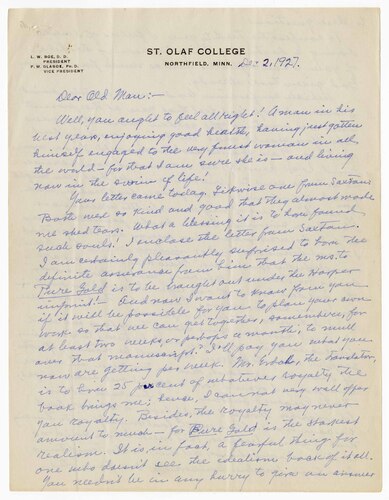 L. W. BOE, D. D.
PRESIDENT
P. M. GLASOE, PH. D.
VICE PRESIDENT
ST. OLAF COLLEGE
NORTHFIELD, MINN.
Dec 2, 1927.
Dear Old Man:-
Well, you ought to feel allright! A man in his
best years, enjoying good health, having just gotten
himself engaged to the very finest woman in all
the world - for that I am sure she is - and living
now in the swim of life!
Your letter came today. Likewise one from Saxton.
Both were so kind and good that they almost made
me shed tears. What a blessing it is to have found
such souls! I enclose the letter from Saxton.
I am certainly pleasantly surprised to have the
definite assurance from him that the ms. to
Pure Gold is to be brought out under the Harper
imprint! - And now I want to know from you
if it will be possible for you to plan your own
work so that we can get together, somewhere, for
at least two weeks or perhaps a month, to mull
over that manuscript? I'll pay you what you
now are getting per week. Mrs. the translator,
is to have 25 percent of whatever royalty the
book brings me; hence, I can not very well offer
you royalty. Besides, the royalty may never
amount to much - for Pure Gold is the starkest
realism. It is, in fact, a fearful thing for
one who doesn't see the idealism back of it all.
You needn't be in any hurry to give an answer